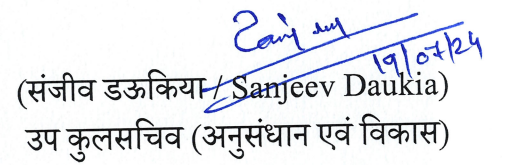 19/07/24
(संजीव डऊकिया / Sanjeev Daukia)
उप कुलसचिव (अनुसंधान एवं विकास)